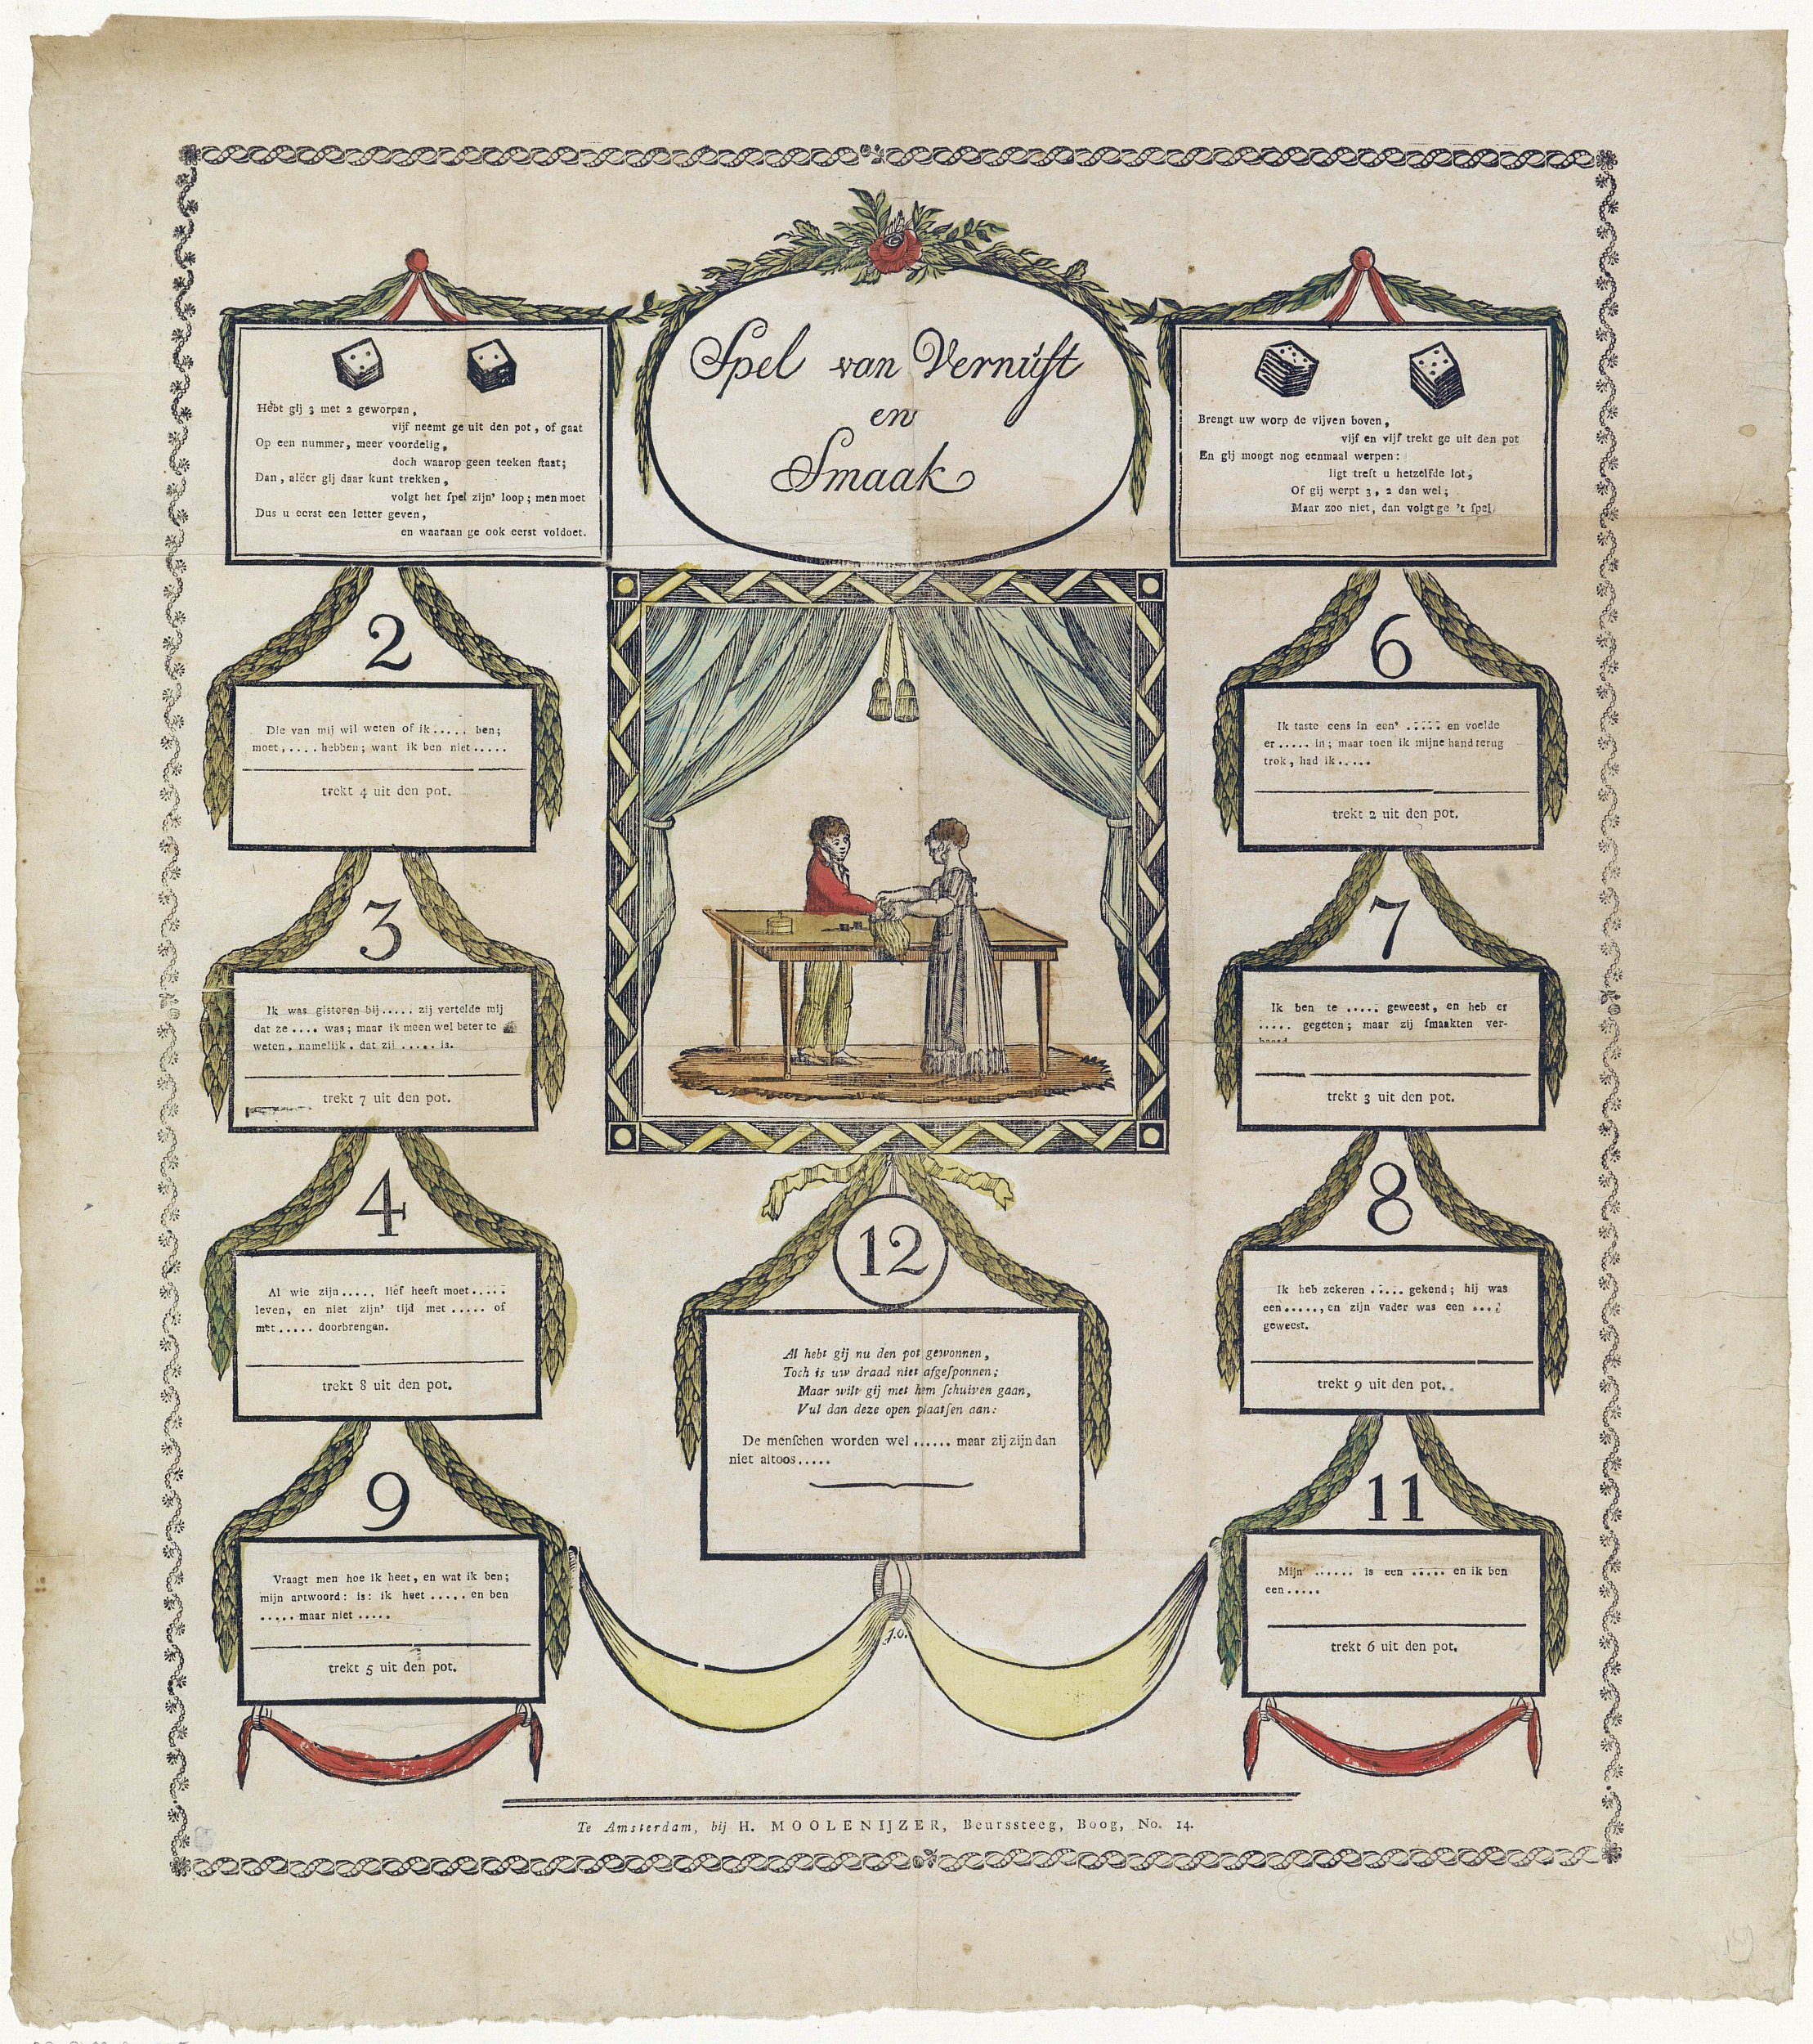 Spel van Vernuft
en
Smaak
Hebt gij 3 met 2 geworpen,
vijf neemt ge uit den pot, of gaat
Op een nummer, meer voordelig,
doch waarop geen teeken ſtaat;
Dan, aléér gij daar kunt trekken,
volgt het ſpel zijn' loop; men moet
Dus u eerst een letter geven,
en waaraan ge ook eerst voldoet.
Brengt uw worp de vijven boven,
vijf en vijf trekt ge uit den pot
En gij moogt nog eenmaal werpen:
ligt treft u hetzelfde lot,
Of gij werpt 3, 2 dan wel;
Maar zoo niet, dan volgt ge 't ſpel
2
Die van mij wil weten of ik ..... ben;
moet, .... hebben; want ik ben niet .....
trekt 4 uit den pot.
3
Ik was gisteren bij ..... zij vertelde mij
dat ze .... was; maar ik meen wel beter te
weten, namelijk, dat zij ..... is.
trekt 7 uit den pot.
4
Al wie zijn ...., lief heeft moet .....
leven, en niet zijn' tijd met ..... of
met ..... doorbrengen.
trekt 8 uit den pot.
9
Vraagt men hoe ik heet, en wat ik ben;
mijn antwoord: is: ik heet ..... en ben
..... maar niet .....
trekt 5 uit den pot.
6
Ik taste eens in een' ..... en voelde
er ..... in; maar toen ik mijne hand terug
trok, had ik .....
trekt 2 uit den pot.
7
Ik ben te ..... geweest, en heb er
..... gegeten; maar zij ſmaakten ver-
baard
trekt 3 uit den pot.
8
Ik heb zekeren ..... gekend; hij was
een ....., en zijn vader was een ....
geweest.
trekt 9 uit den pot.
11
Mijn ...... is een ..... en ik ben
een .....
trekt 6 uit den pot.
12
Al hebt gij nu den pot gewonnen,
Toch is uw draad niet afgeſponnen;
Maar wilt gij met hem ſchuiven gaan,
Vul dan deze open plaatſen aan:
De menſchen worden wel ...... maar zij zijn dan
niet altoos .....
J.O.
Te Amsterdam, bij H. MOOLENIJZER, Beurssteeg, Boog, No. 14.